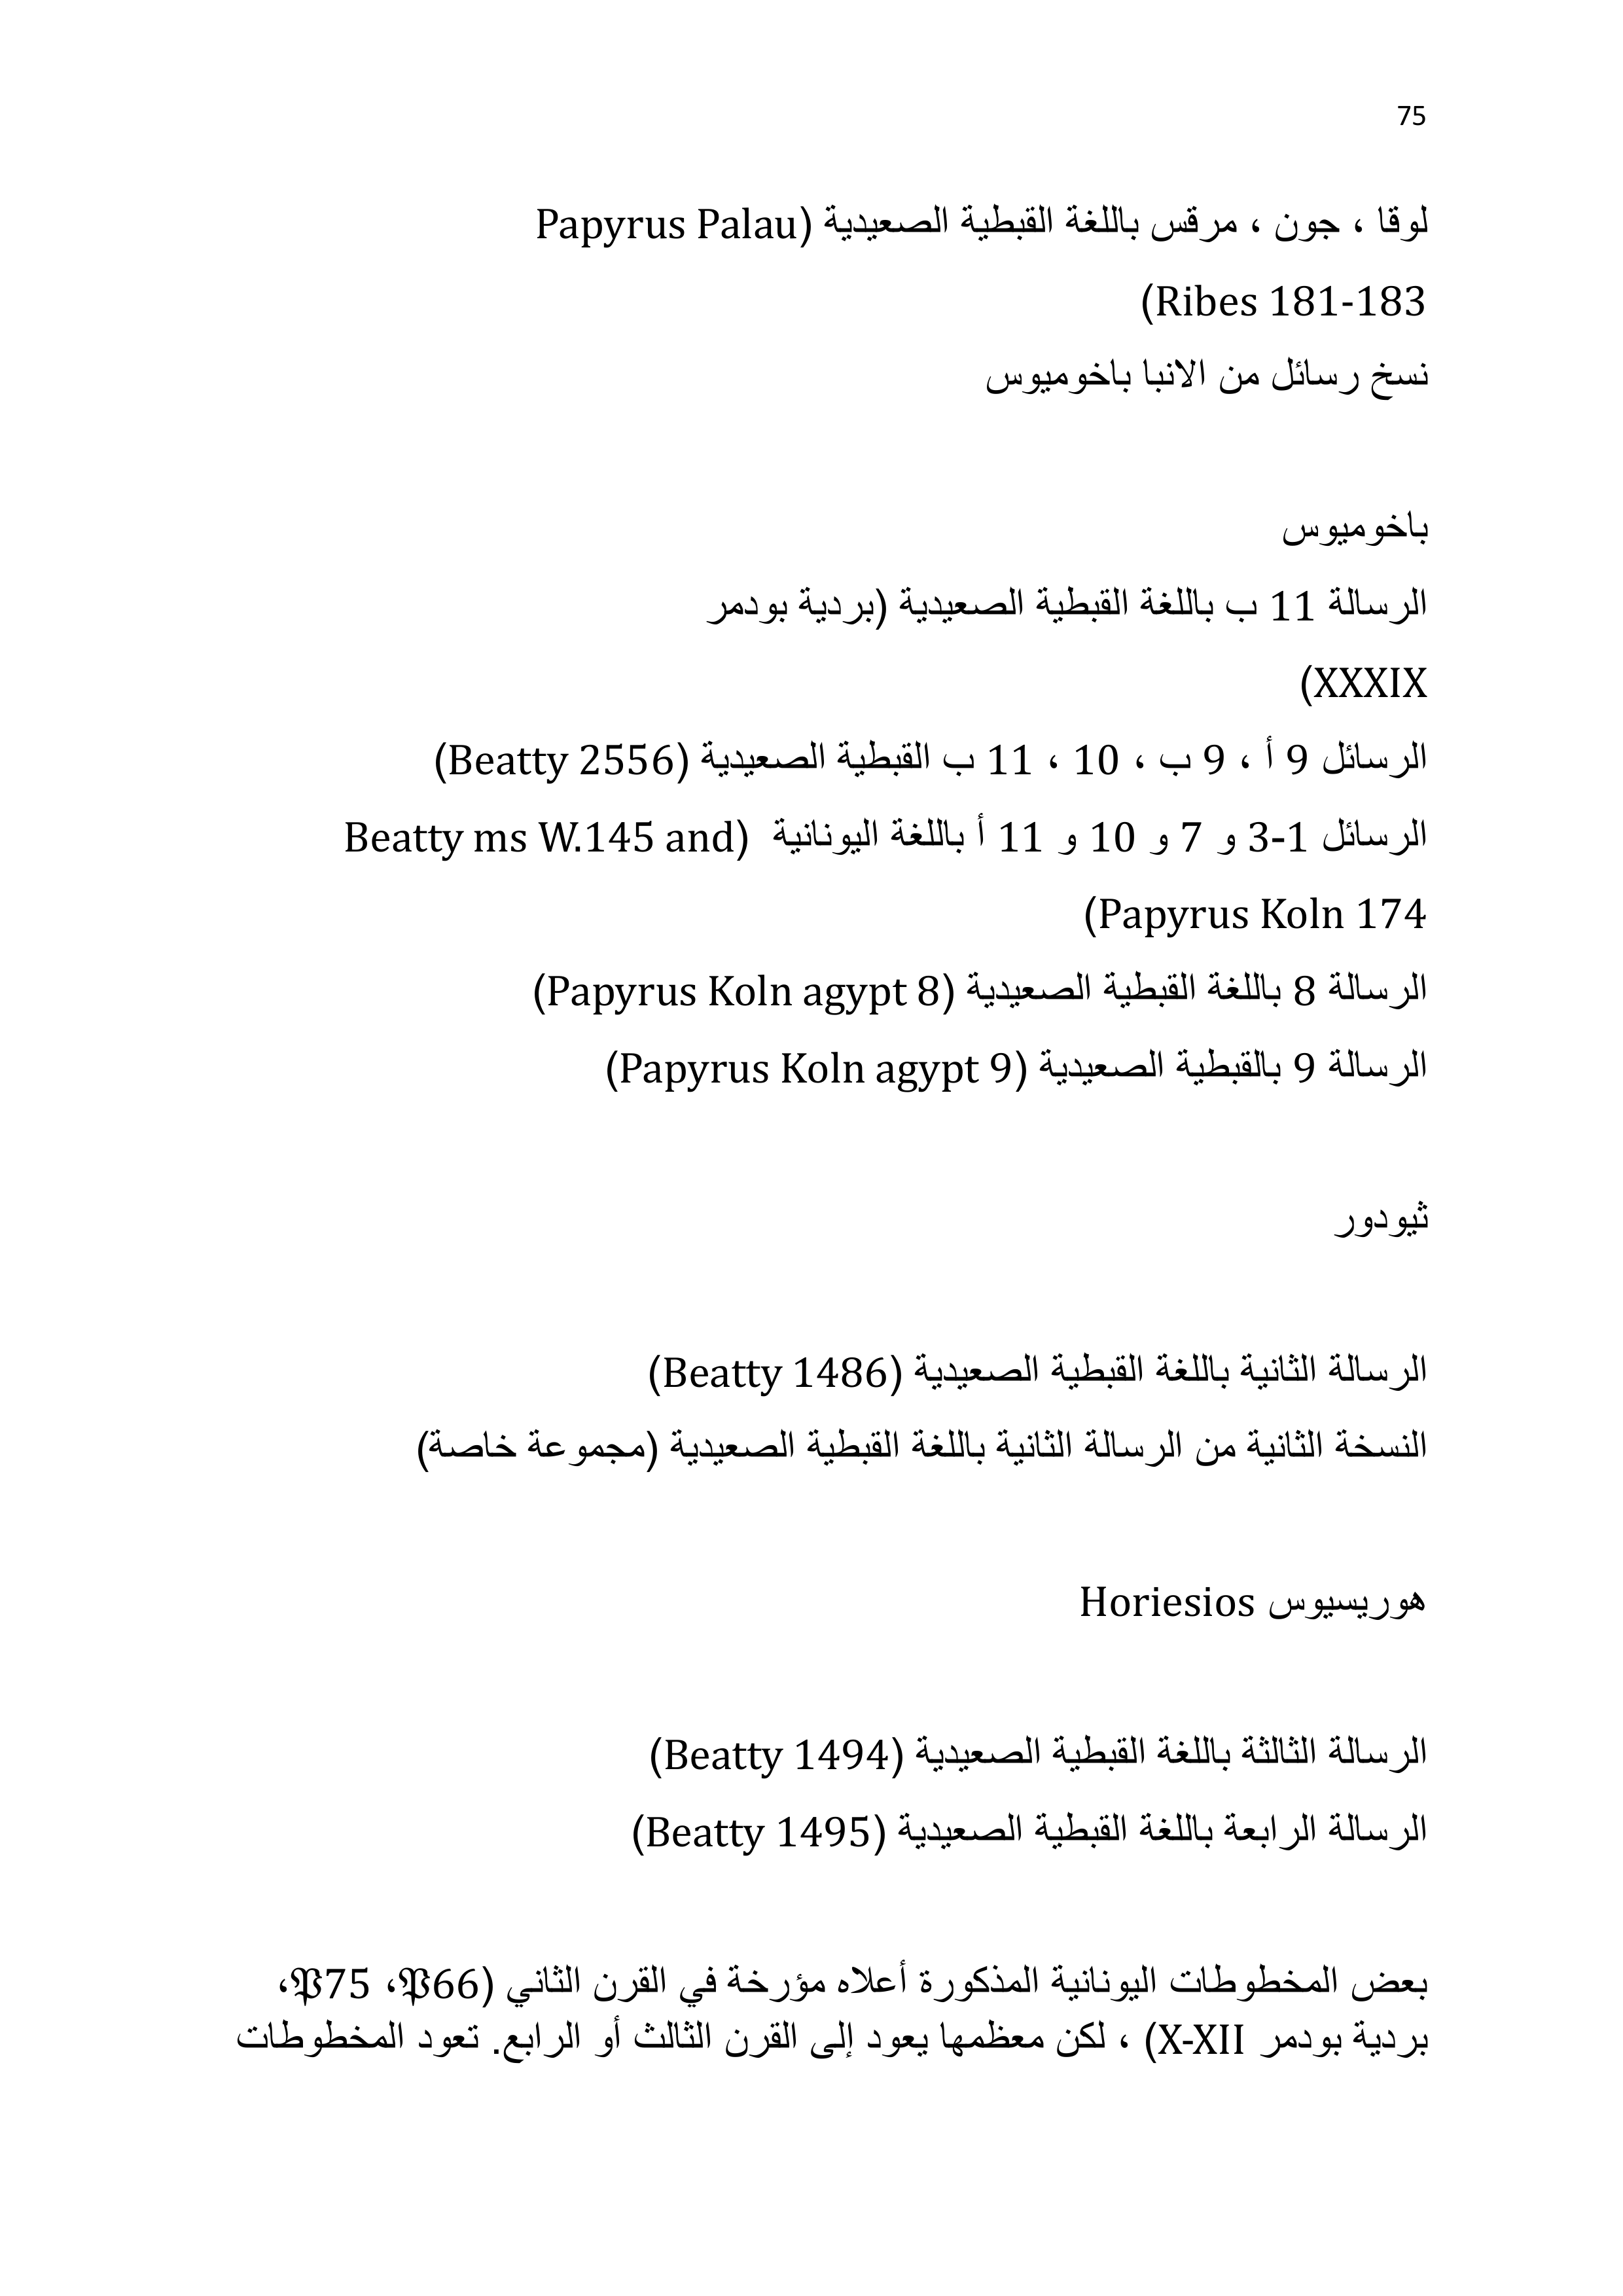 75
لوقا ، جون ، مرقس باللغة القبطية الصعيدية (Papyrus Palau
Ribes 181-183)
نسخ رسائل من الانبا باخوميوس
باخوميوس
الرسالة 11 ب باللغة القبطية الصعيدية (بردية بودمر
XXXIX)
الرسائل 9 أ ، 9 ب ، 10 ، 11 ب القبطية الصعيدية (Beatty 2556)
الرسائل 1-3 و 7 و 10 و 11 أ باللغة اليونانية (Beatty ms W.145 and
Papyrus Koln 174)
الرسالة 8 باللغة القبطية الصعيدية (Papyrus Koln agypt 8)
الرسالة 9 بالقبطية الصعيدية (Papyrus Koln agypt 9)
ثيودور
الرسالة الثانية باللغة القبطية الصعيدية (Beatty 1486)
النسخة الثانية من الرسالة الثانية باللغة القبطية الصعيدية (مجموعة خاصة)
هوريسيوس Horiesios
الرسالة الثالثة باللغة القبطية الصعيدية (Beatty 1494)
الرسالة الرابعة باللغة القبطية الصعيدية (Beatty 1495)
بعض المخطوطات اليونانية المذكورة أعلاه مؤرخة في القرن الثاني (𝔓66، 𝔓75،
بردية بودمر X-XII) ، لكن معظمها يعود إلى القرن الثالث أو الرابع. تعود المخطوطات